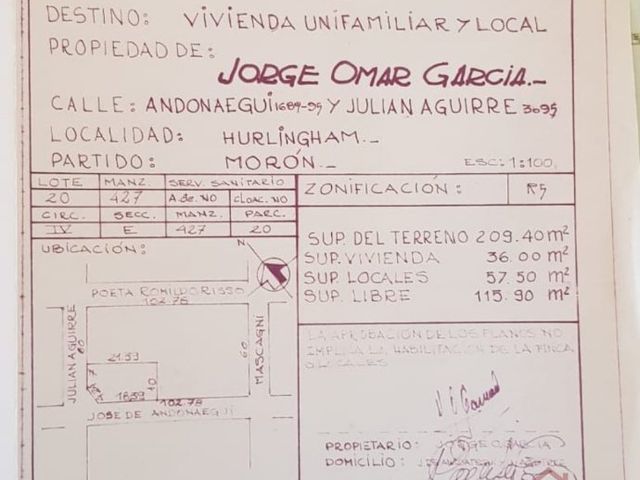 DESTINO: VIVIENDA UNIFAMILIAR Y LOCAL
PROPIEDAD DE:
JORGE OMAR GARCIA._
CALLE: ANDONAEGUI 1689-95 Y JULIAN AGUIRRE 3095
LOCALIDAD: HURLINGHAM._
PARTIDO: MORÓN._ ESC: 1:100.
LOTE MANZ. SERV. SANITARIO
20 427 A.de. NO CLOAC. NO
CIRC. SECC. MANZ. PARC.
IV E 427 20
ZONIFICACIÓN: R5
UBICACIÓN:
N
SUP. DEL TERRENO 209.40 m²
SUP. VIVIENDA 36.00 m²
SUP. LOCALES 57.50 m²
SUP. LIBRE 115.90 m²
POETA ROMILDO RISSO
102.78
JULIAN AGUIRRE
60
MASCAGNI
21.53
10
18.59
102.78
JOSE DE ANDONAEGUI
LA APROBACION DE LOS PLANOS NO
IMPLICA LA HABILITACION DE LA FINCA
O LOCALES
PROPIETARIO: JORGE O. GARCIA
DOMICILIO: